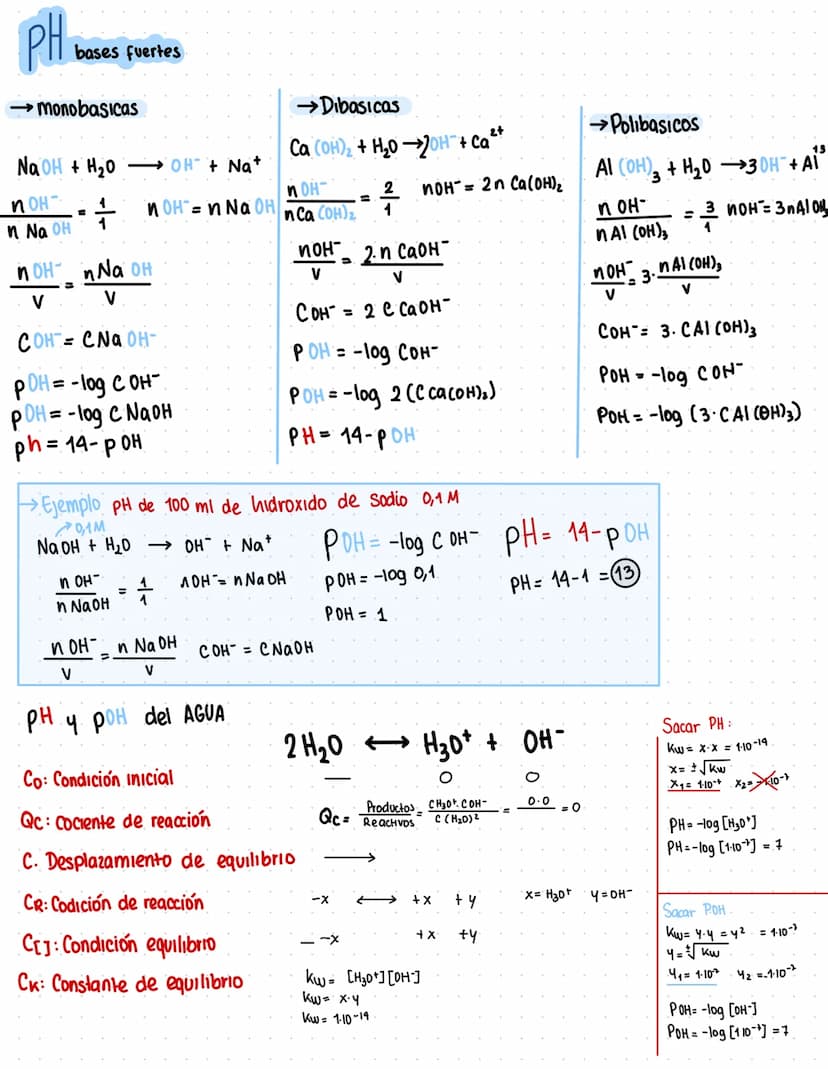 PH bases fuertes
→ monobasicas
NaOH + H₂O ⟶ OH⁻ + Na⁺
n OH⁻ / n NaOH = 1/1 n OH⁻ = n NaOH
n OH⁻ / V = n NaOH / V
C OH⁻ = C NaOH⁻
pOH = -log C OH⁻
pOH = -log C NaOH
ph = 14 - pOH
→ Dibasicas
Ca(OH)₂ + H₂O → 2OH⁻ + Ca²⁺
n OH⁻ / n Ca(OH)₂ = 2/1 nOH⁻ = 2n Ca(OH)₂
nOH⁻ / V = 2·n CaOH⁻ / V
COH⁻ = 2 C CaOH⁻
POH = -log COH⁻
POH = -log 2 (C Ca(OH)₂)
PH = 14 - pOH
→ Polibasicos
Al(OH)₃ + H₂O → 3OH⁻ + Al¹³
n OH⁻ / n Al(OH)₃ = 3/1 nOH⁻ = 3nAlOH₃
nOH⁻ / V = 3· nAl(OH)₃ / V
COH⁻ = 3·CAl(OH)₃
POH = -log COH⁻
POH = -log (3·CAl(OH)₃)
→ Ejemplo PH de 100 ml de hidroxido de sodio 0,1 M
0,1M
NaOH + H₂O → OH⁻ + Na⁺
n OH⁻ / n NaOH = 1/1 nOH⁻ = nNaOH
n OH⁻ / V = n NaOH / V COH⁻ = CNaOH
POH = -log C OH⁻
pOH = -log 0,1
POH = 1
pH = 14 - pOH
PH = 14-1 = 13
pH y pOH del AGUA
2H₂O ⟷ H₃O⁺ + OH⁻
Co: Condición inicial — O O
Qc: Cociente de reacción Qc = Productos / Reactivos = CH₃O⁺·COH⁻ / C(H₂O)² = 0·0 = 0
C. Desplazamiento de equilibrio ⟶
CR: Codición de reacción -x ⟷ +x +y x= H₃O⁺ y=OH⁻
C[]: Condición equilibrio — -x +x +y
CK: Constante de equilibrio kw = [H₃O⁺][OH⁻]
kw = x·y
Kw = 1·10⁻¹⁴
Sacar PH:
Kw = x·x = 1·10⁻¹⁴
x = ±√kw
x₁ = 1·10⁻⁷ x₂ = -1·10⁻⁷
PH = -log [H₃O⁺]
PH = -log [1·10⁻⁷] = 7
Sacar POH
Kw = y·y = y² = 1·10⁻⁷
y = ±√kw
y₁ = 1·10⁷ y₂ = -1·10⁻²
POH = -log [OH⁻]
POH = -log [1·10⁻⁷] = 7